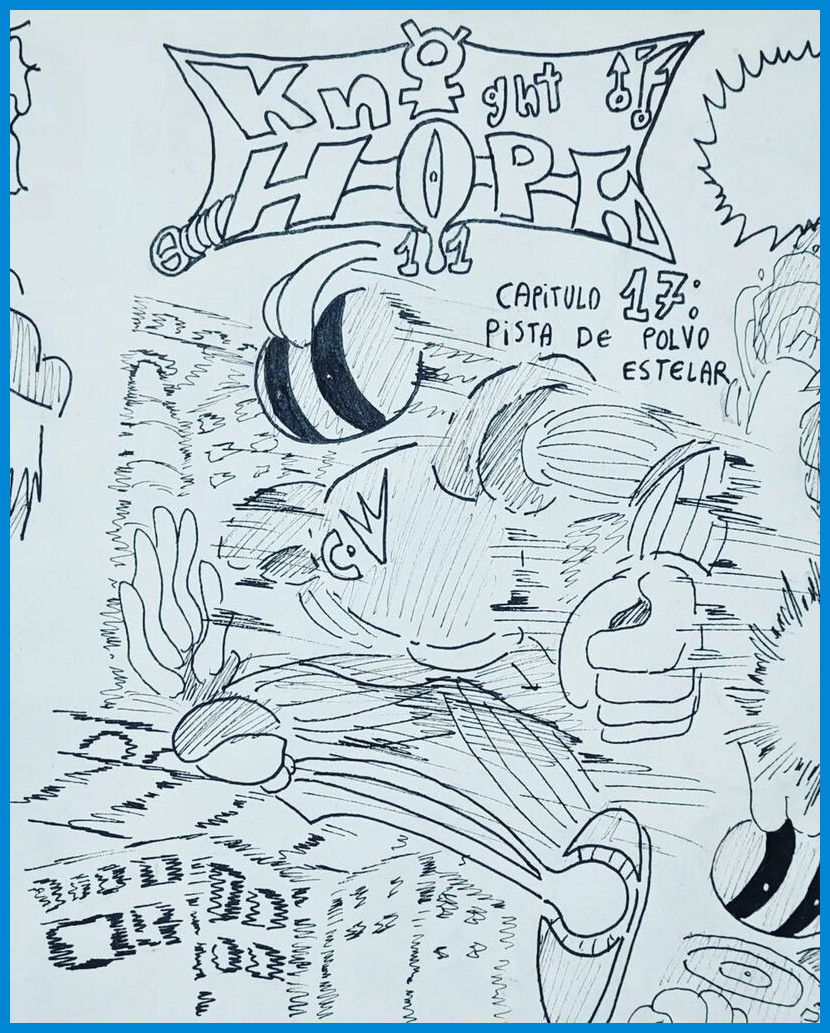 Knight
HOPE
11
CAPITULO 17:
PISTA DE POLVO
ESTELAR